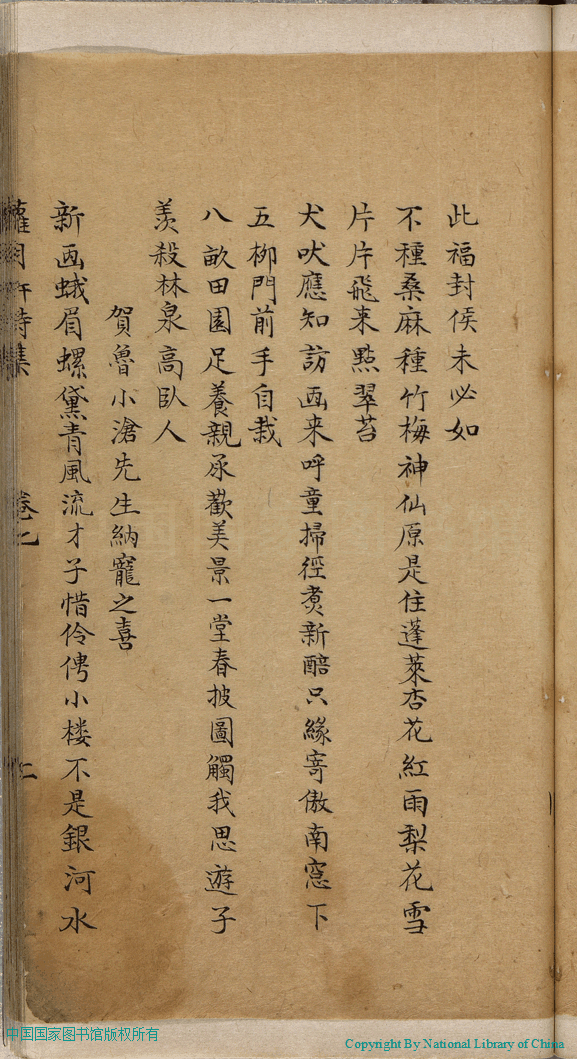 此福封侯未必如
不種桑麻種竹梅神仙原是住蓬萊杏花紅雨梨花雪
片片飛来點翠苔
犬吠應知訪画来呼童掃徑煑新醅只緣寄傲南窓下
五柳門前手自栽
八畝田園足養親承歡美景一堂春披圖觸我思遊子
羡殺林泉高臥人
賀魯小滄先生納寵之喜
新画蛾眉螺黛青風流才子惜伶俜小楼不是銀河水
詩集
卷七
二
中国国家图书馆版权所有
Copyright By National Library of China